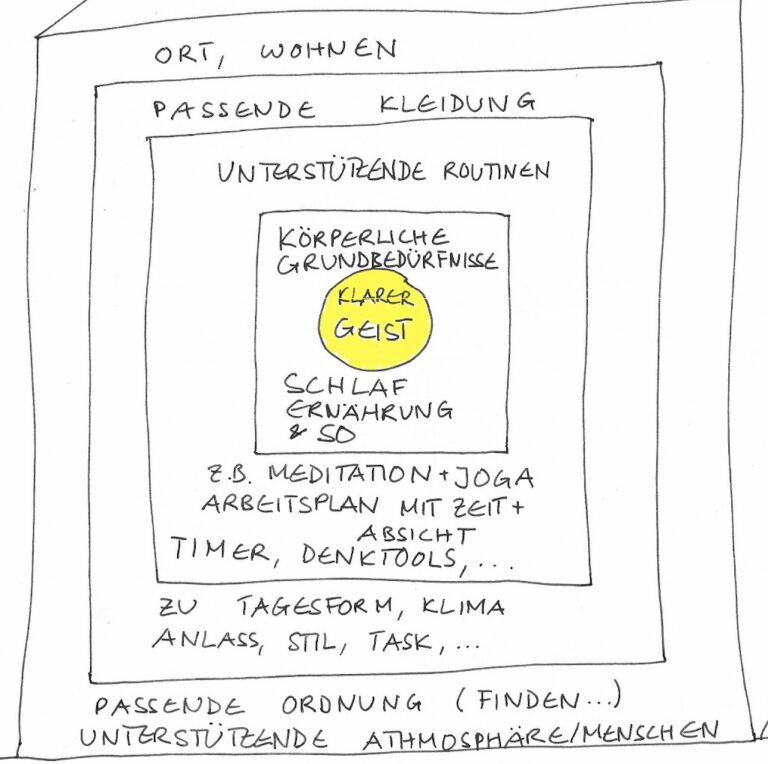 ORT, WOHNEN
PASSENDE KLEIDUNG
UNTERSTÜTZENDE ROUTINEN
KÖRPERLICHE
GRUNDBEDÜRFNISSE
KLARER
GEIST
SCHLAF
ERNÄHRUNG
& SO
Z.B. MEDITATION + JOGA
ARBEITSPLAN MIT ZEIT +
ABSICHT
TIMER, DENKTOOLS, ...
ZU TAGESFORM, KLIMA
ANLASS, STIL, TASK, ...
PASSENDE ORDNUNG (FINDEN...)
UNTERSTÜTZENDE ATHMOSPHÄRE/MENSCHEN